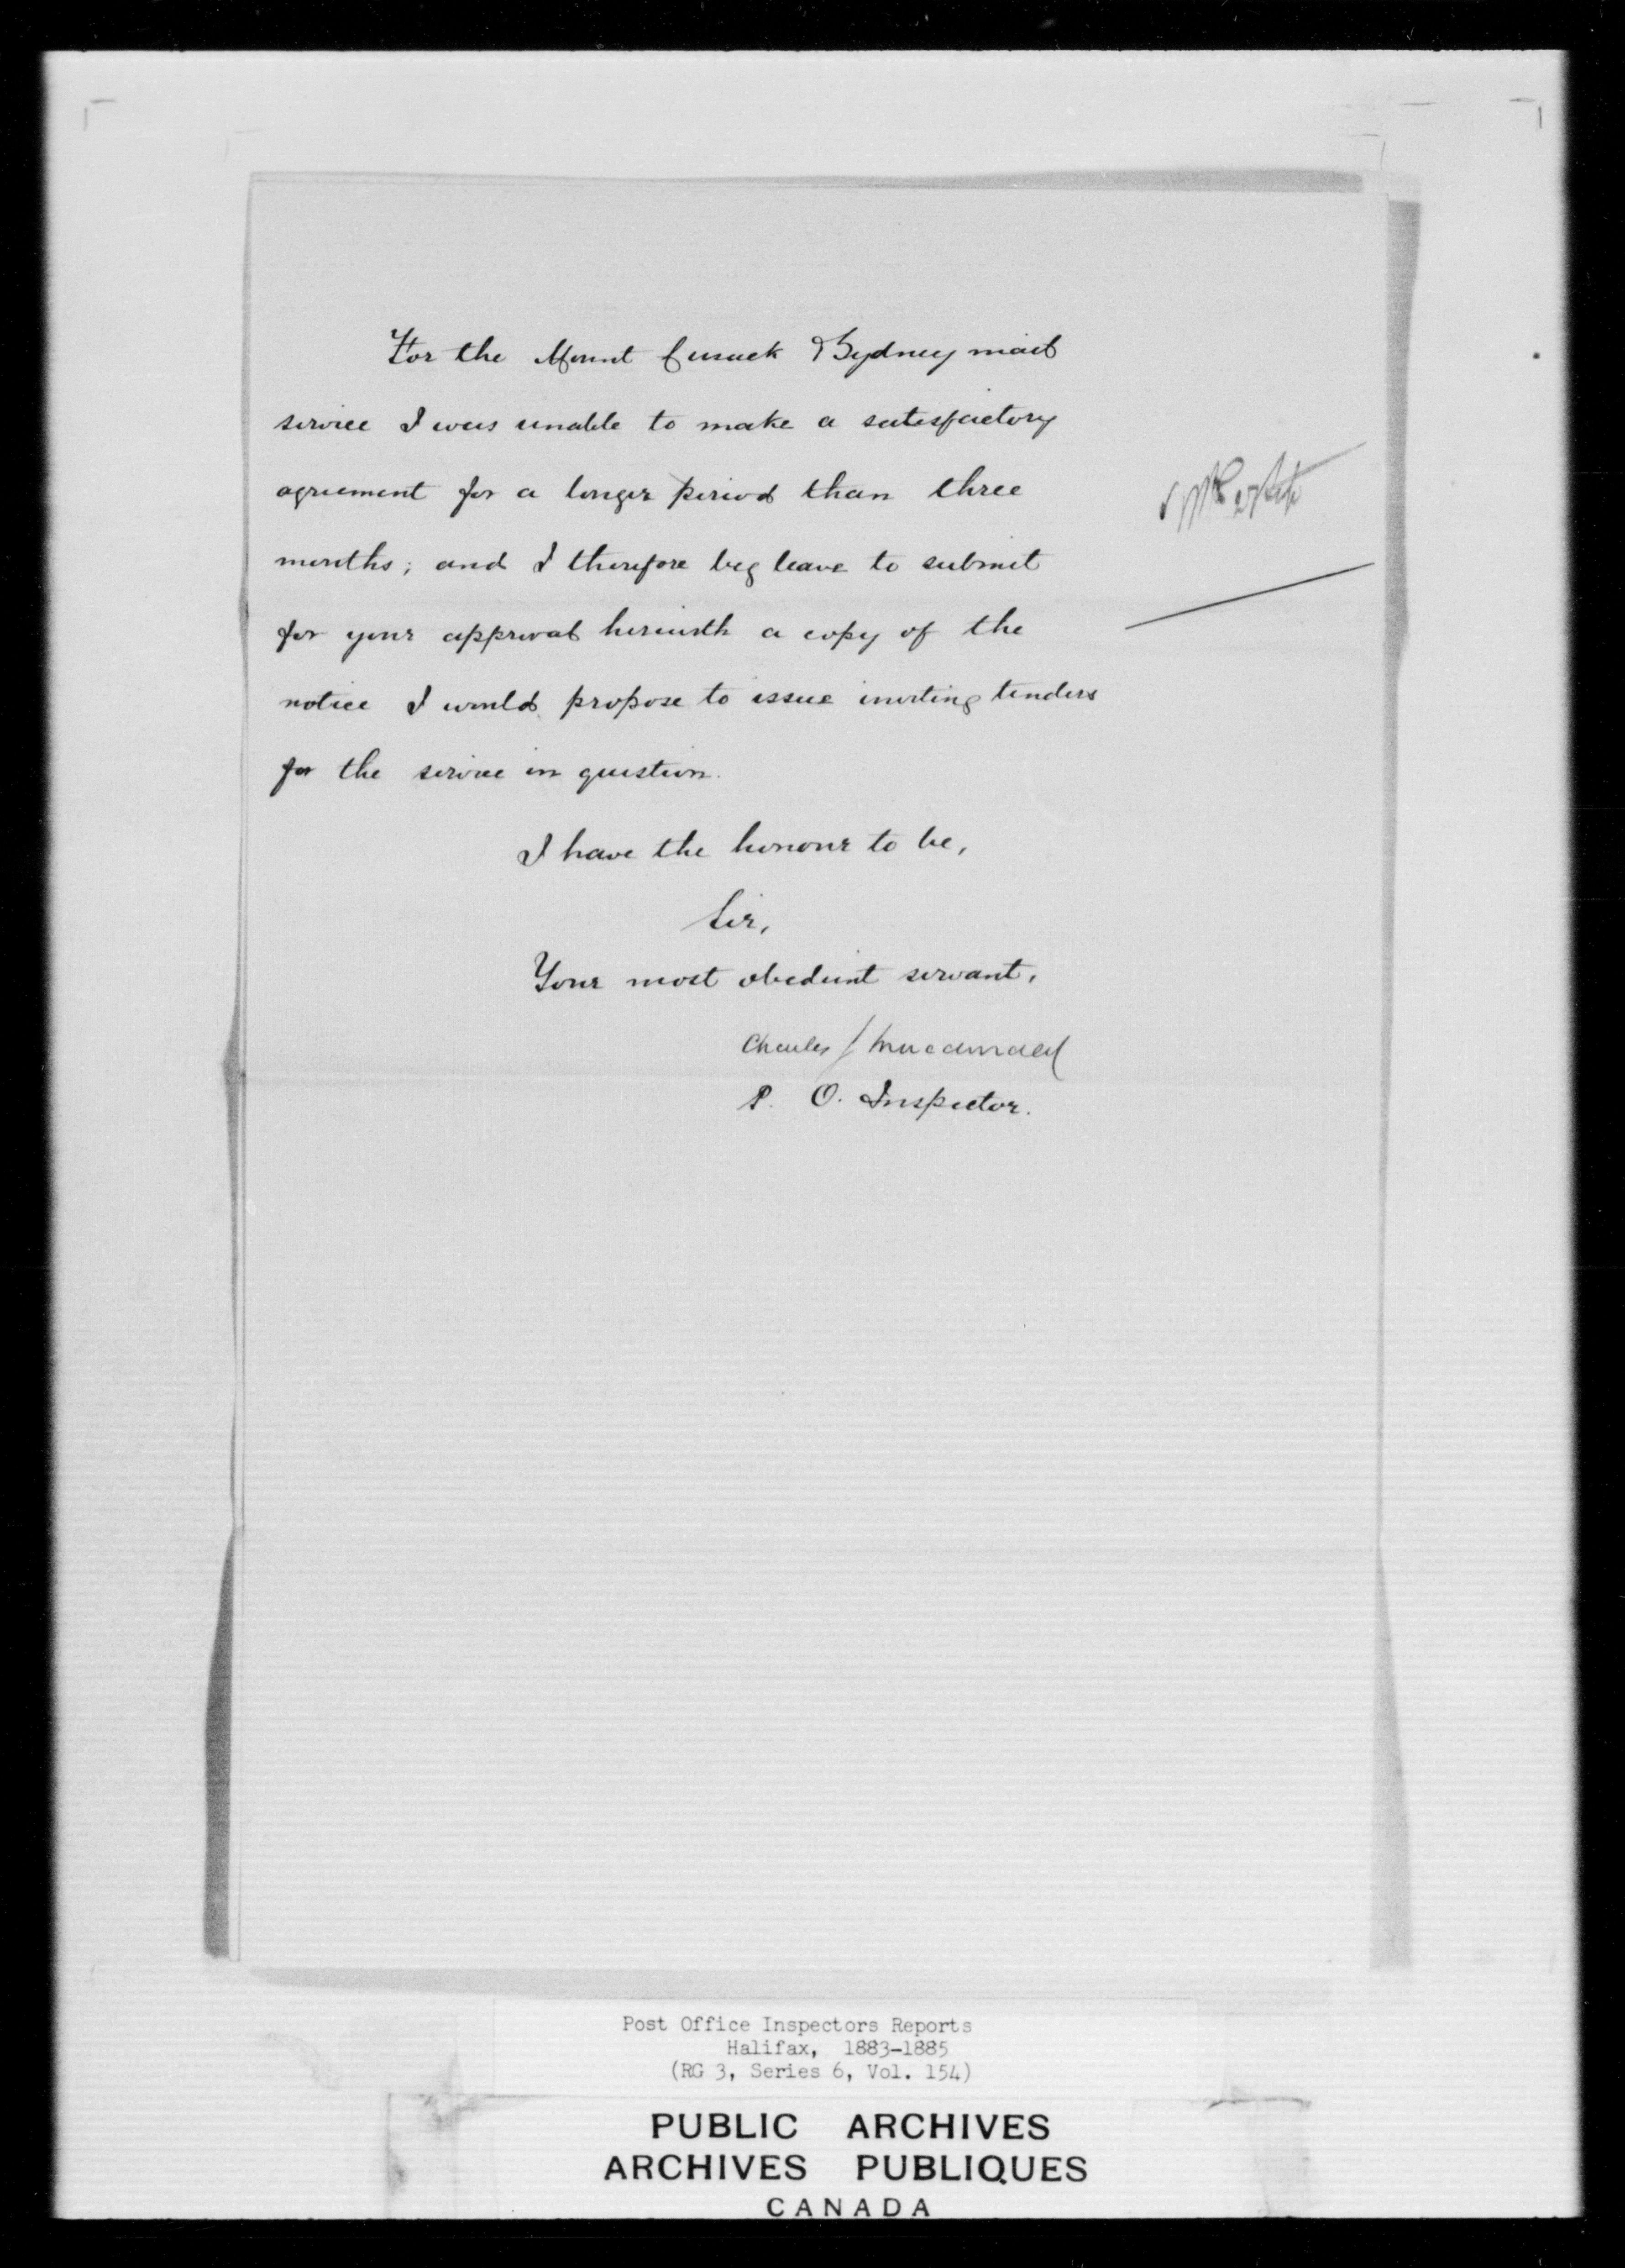 For the Mount Cusack & Sydney mail
service I was unable to make a satisfactory
agreement for a longer period than three
months; and I therefore beg leave to submit
for your approval herewith a copy of the
notice I would propose to issue inviting tenders
for the service in question.
I have the honour to be,
Sir,
Your most obedient servant,
Charles J Macdonald
P. O. Inspector.
Post Office Inspectors Reports
Halifax, 1883-1885
(RG 3, Series 6, Vol. 154)
PUBLIC ARCHIVES
ARCHIVES PUBLIQUES
CANADA